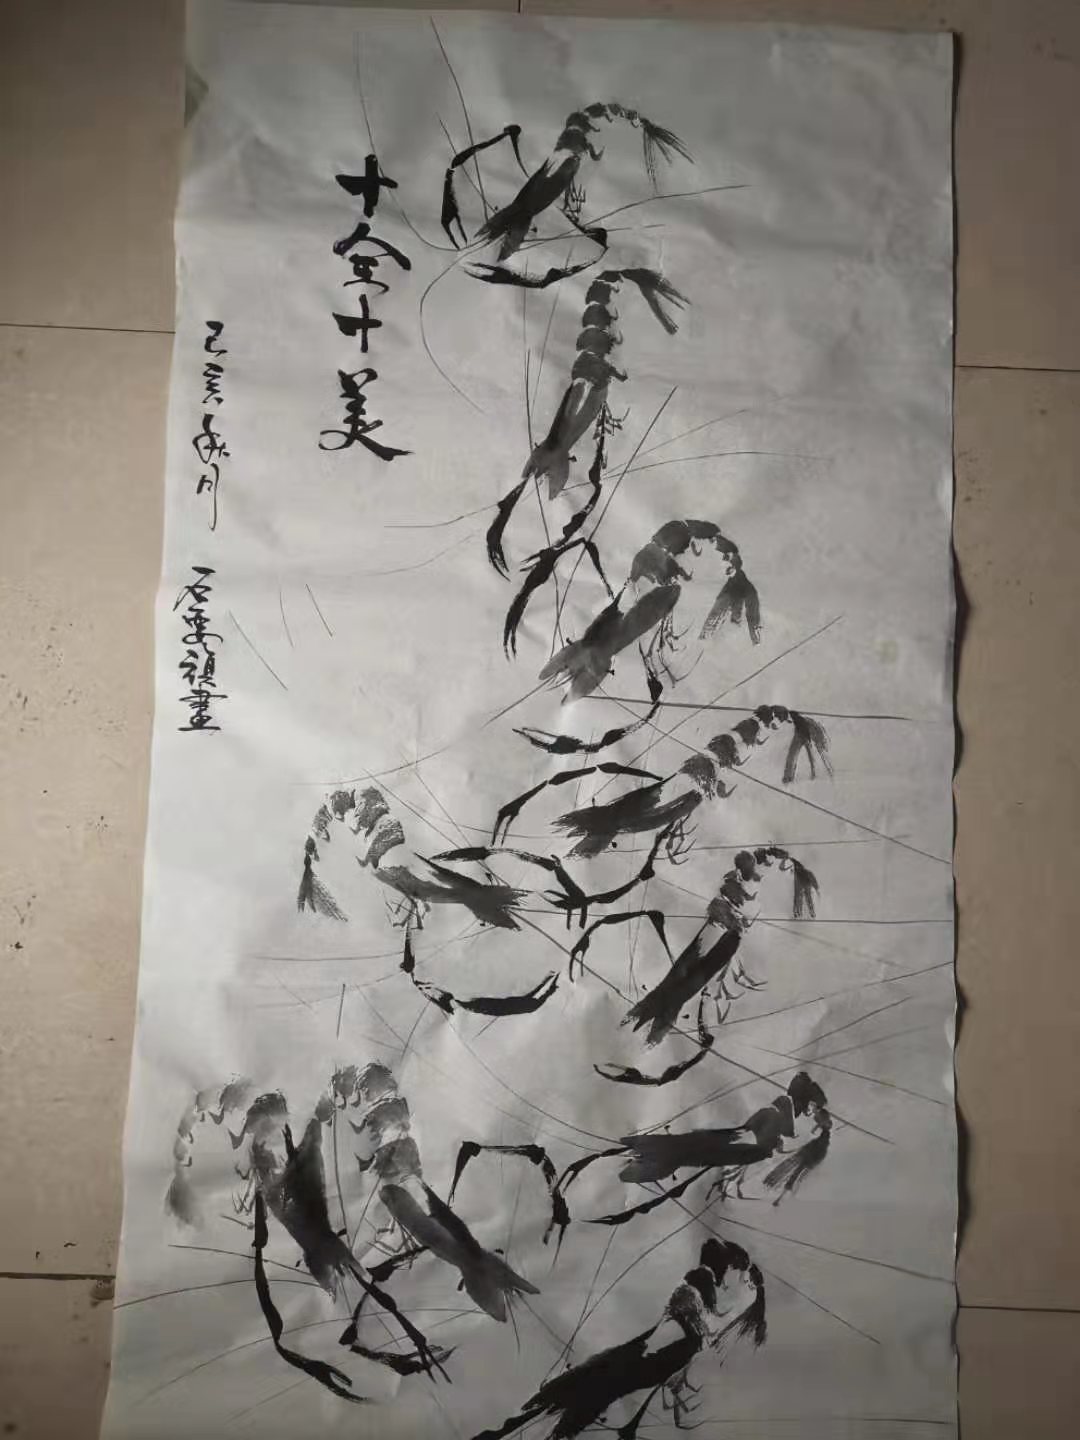 十全十美
己亥秋月
石雯禎畫